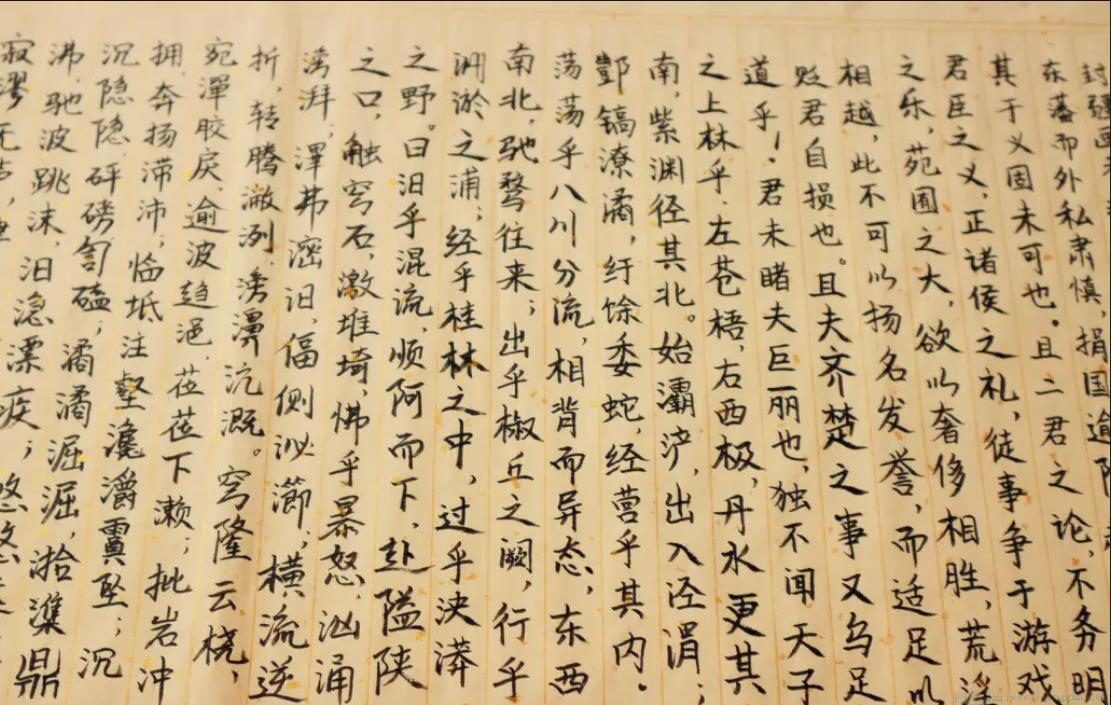 封疆画
东藩而外私肃慎，捐国逾限，
其于义固未可也。且二君之论，不务明
君臣之义，正诸侯之礼，徒事争于游戏
之乐，苑囿之大，欲以奢侈相胜，荒淫
相越，此不可以扬名发誉，而适足以
贬君自损也。且夫齐楚之事又乌足
道乎！君未睹夫巨丽也，独不闻天子
之上林乎，左苍梧，右西极，丹水更其
南，紫渊径其北。始灞浐，出入泾渭；
酆镐潦潏，纡馀委蛇，经营乎其内。
荡荡乎八川分流，相背而异态，东西
南北，驰骛往来；出乎椒丘之阙，行乎
洲淤之浦；经乎桂林之中，过乎泱漭
之野。汩乎混流，顺阿而下，赴隘陕
之口，触穹石，激堆埼，怫乎暴怒，汹涌
滂湃；滭弗滵汩，偪侧泌瀄，横流逆
折，转腾潎洌，滂濞沆溉。穹隆云桡，
宛潬胶戾，逾波趋浥，莅莅下濑；批岩冲
拥，奔扬滞沛；临坻注壑，瀺灂霣坠；沉
沉隐隐，砰磅訇磕；潏潏淈淈，湁潗鼎
沸，驰波跳沫，汩㴔漂疾；悠悠
寂漻无声，